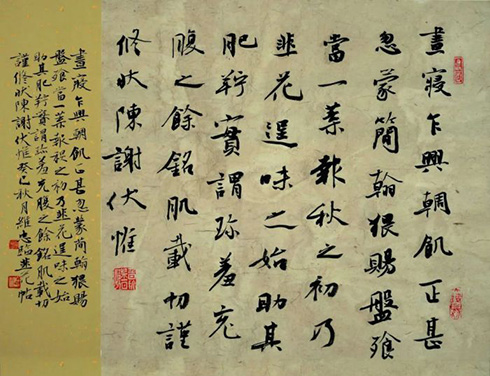 晝寢乍興朝飢正甚
忽蒙簡翰猥賜盤飧
當一葉報秋之初乃
韭花逞味之始助其
肥羜實謂珍羞充
腹之餘銘肌載切謹
修狀陳謝伏惟
晝寢乍興朝飢正甚忽蒙簡翰猥賜
盤飧當一葉報秋之初乃韭花逞味之始
助其肥羜實謂珍羞充腹之餘銘肌載切
謹修狀陳謝伏惟癸巳秋月維志臨韭花帖